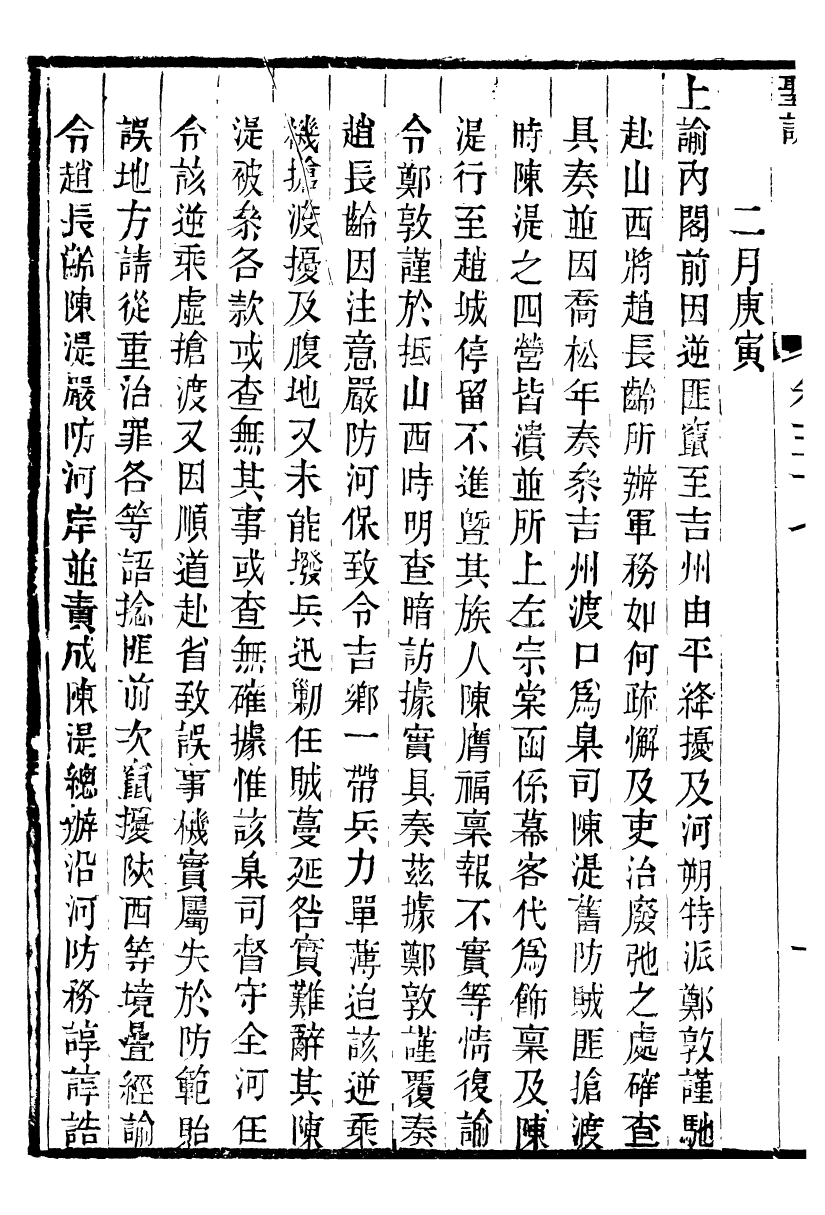 聖訓
二月庚寅
上諭內閣前因逆匪竄至吉州由平絳擾及河朔特派鄭敦謹馳
赴山西將趙長齡所辦軍務如何疏懈及吏治廢弛之處確查
具奏並因喬松年奏叅吉州渡口爲臬司陳湜舊防賊匪搶渡
時陳湜之四營皆潰並所上左宗棠函係幕客代爲飾稟及陳
湜行至趙城停留不進曁其族人陳膺福稟報不實等情復諭
令鄭敦謹於抵山西時明查暗訪據實具奏茲據鄭敦謹覆奏
趙長齡因注意嚴防河保致令吉鄉一帶兵力單薄迨該逆乘
機搶渡擾及腹地又未能撥兵迅勦任賊蔓延咎實難辭其陳
湜被叅各款或查無其事或查無確據惟該臬司督守全河任
令該逆乘虛搶渡又因順道赴省致誤事機實屬失於防範貽
誤地方請從重治罪各等語捻匪前次竄擾陝西等境疊經諭
令趙長齡陳湜嚴防河岸並責成陳湜總辦沿河防務諄諄誥